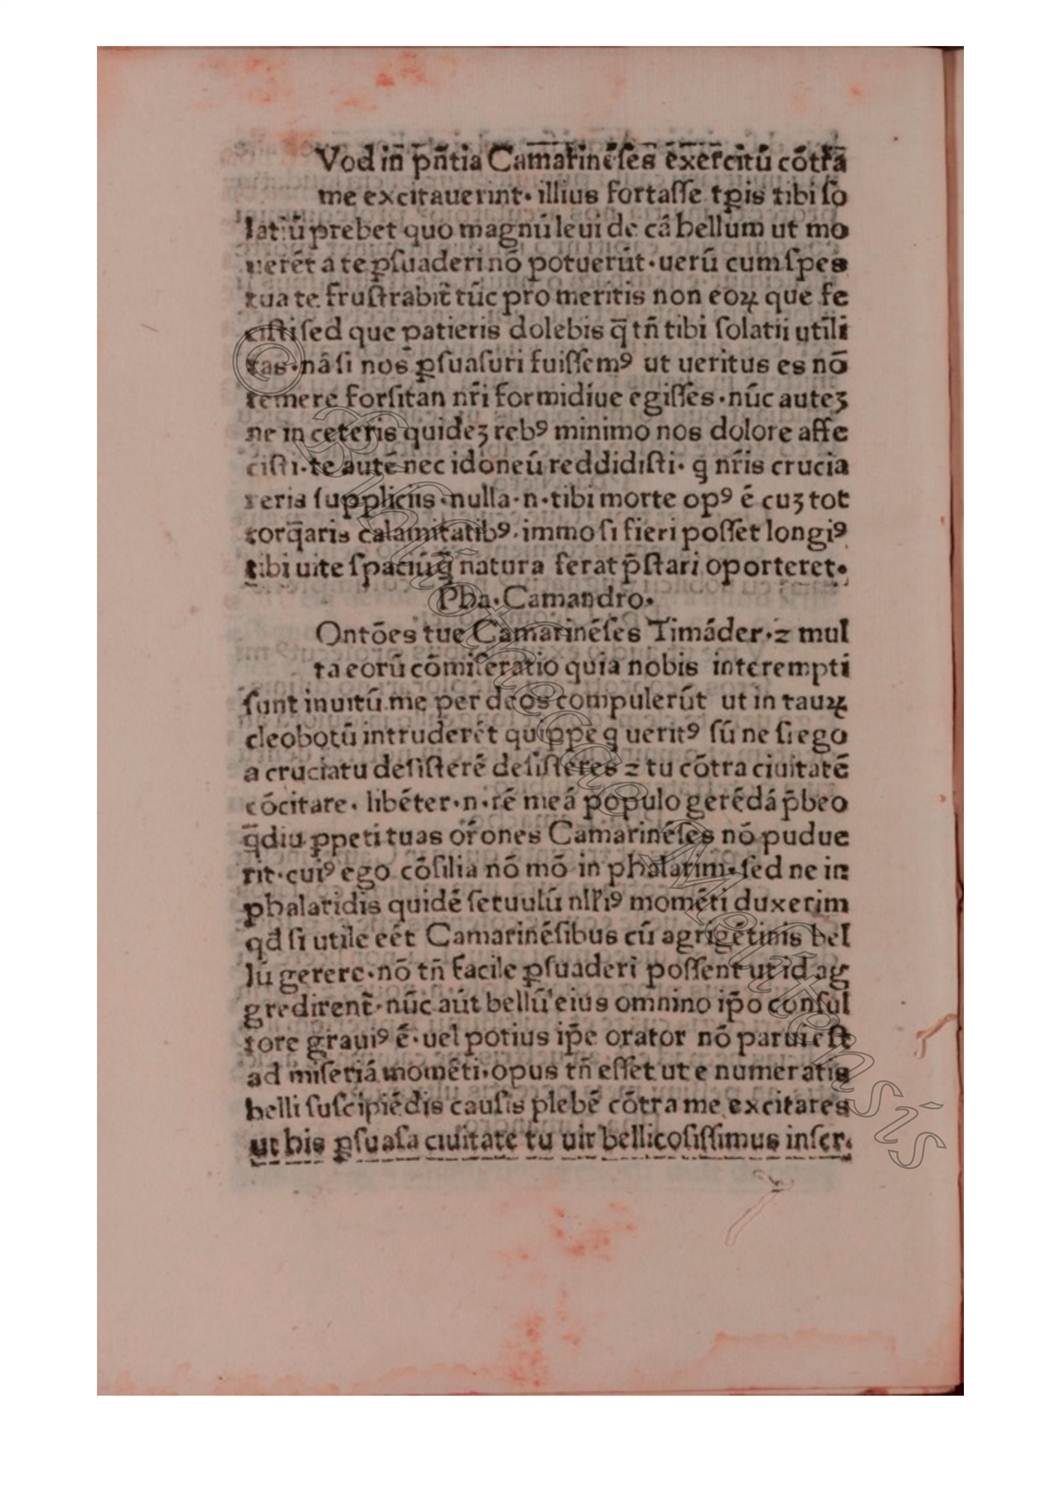 Vod in̄ pn̄tia Camarinēſes ēxercitū cōtra
me excitauerint. illius fortaſſe tp̄is tibi ſo
latiū prebet quo magnū leui de cā bellum ut mo
uerēt a te ꝑſuaderi nō potuerūt. uerū cum ſpes
tua te fruſtrabit̄ tūc pro meritis non eoꝝ que fe
ciſti ſed que patieris dolebis q̄ tn̄ tibi ſolatii utili
tas. nā ſi nos ꝑſuaſuri fuiſſemꝰ ut ueritus es nō
temere forſitan nr̄i formidīue egiſſes. nūc auteꝫ
ne in ceteris quideꝫ rebꝰ minimo nos dolore affe
ciſti. te autē nec idoneū reddidiſti. q̄ nr̄is crucia
reris ſuppliciis. nulla. n. tibi morte opꝰ ē cuꝫ tot
torq̄aris calamitatibꝰ. immo ſi fieri poſſet longiꝰ
tibi uite ſpatiūq̄ natura ferat p̄ſtari oporteret.
Pha. Camandro.
Ontōes tue Camarinēſes Timāder. ⁊ mul
ta eorū cōmiſeratio quia nobis interempti
ſunt inuitū me per deos compulerūt ut in tauꝝ
cleobotū intruderēt quippe q̄ ueritꝰ ſū ne ſi ego
a cruciatu deſiſterē deſiſteres ⁊ tu cōtra ciuitatē
cōcitare. libēter. n. rē meā populo gerēdā p̄beo
q̄diu ꝑpeti tuas or̄ones Camarinēſes nō pudue
rit. cuiꝰ ego cōſilia nō mō in phalarim. ſed ne in
phalaridis quidē ſeruulū nll̄iꝰ momēti duxerim
qd̄ ſi utile eēt Camarinēſibus cū agrigētinis bel
lū gerere. nō tn̄ facile ꝑſuaderi poſſent ut id ag
gredirent̄. nūc aūt bellū eius omnino ip̄o conſul
tore grauiꝰ ē. uel potius ip̄e orator nō parui eſt
ad miſeriā momēti. opus tn̄ eſſet ut e numeratis
belli ſuſcipiēdis cauſis plebē cōtra me excitares
ut his ꝑſuaſa ciuitate tu uir bellicoſiſſimus inſer.
© Biblioteca Complutensis